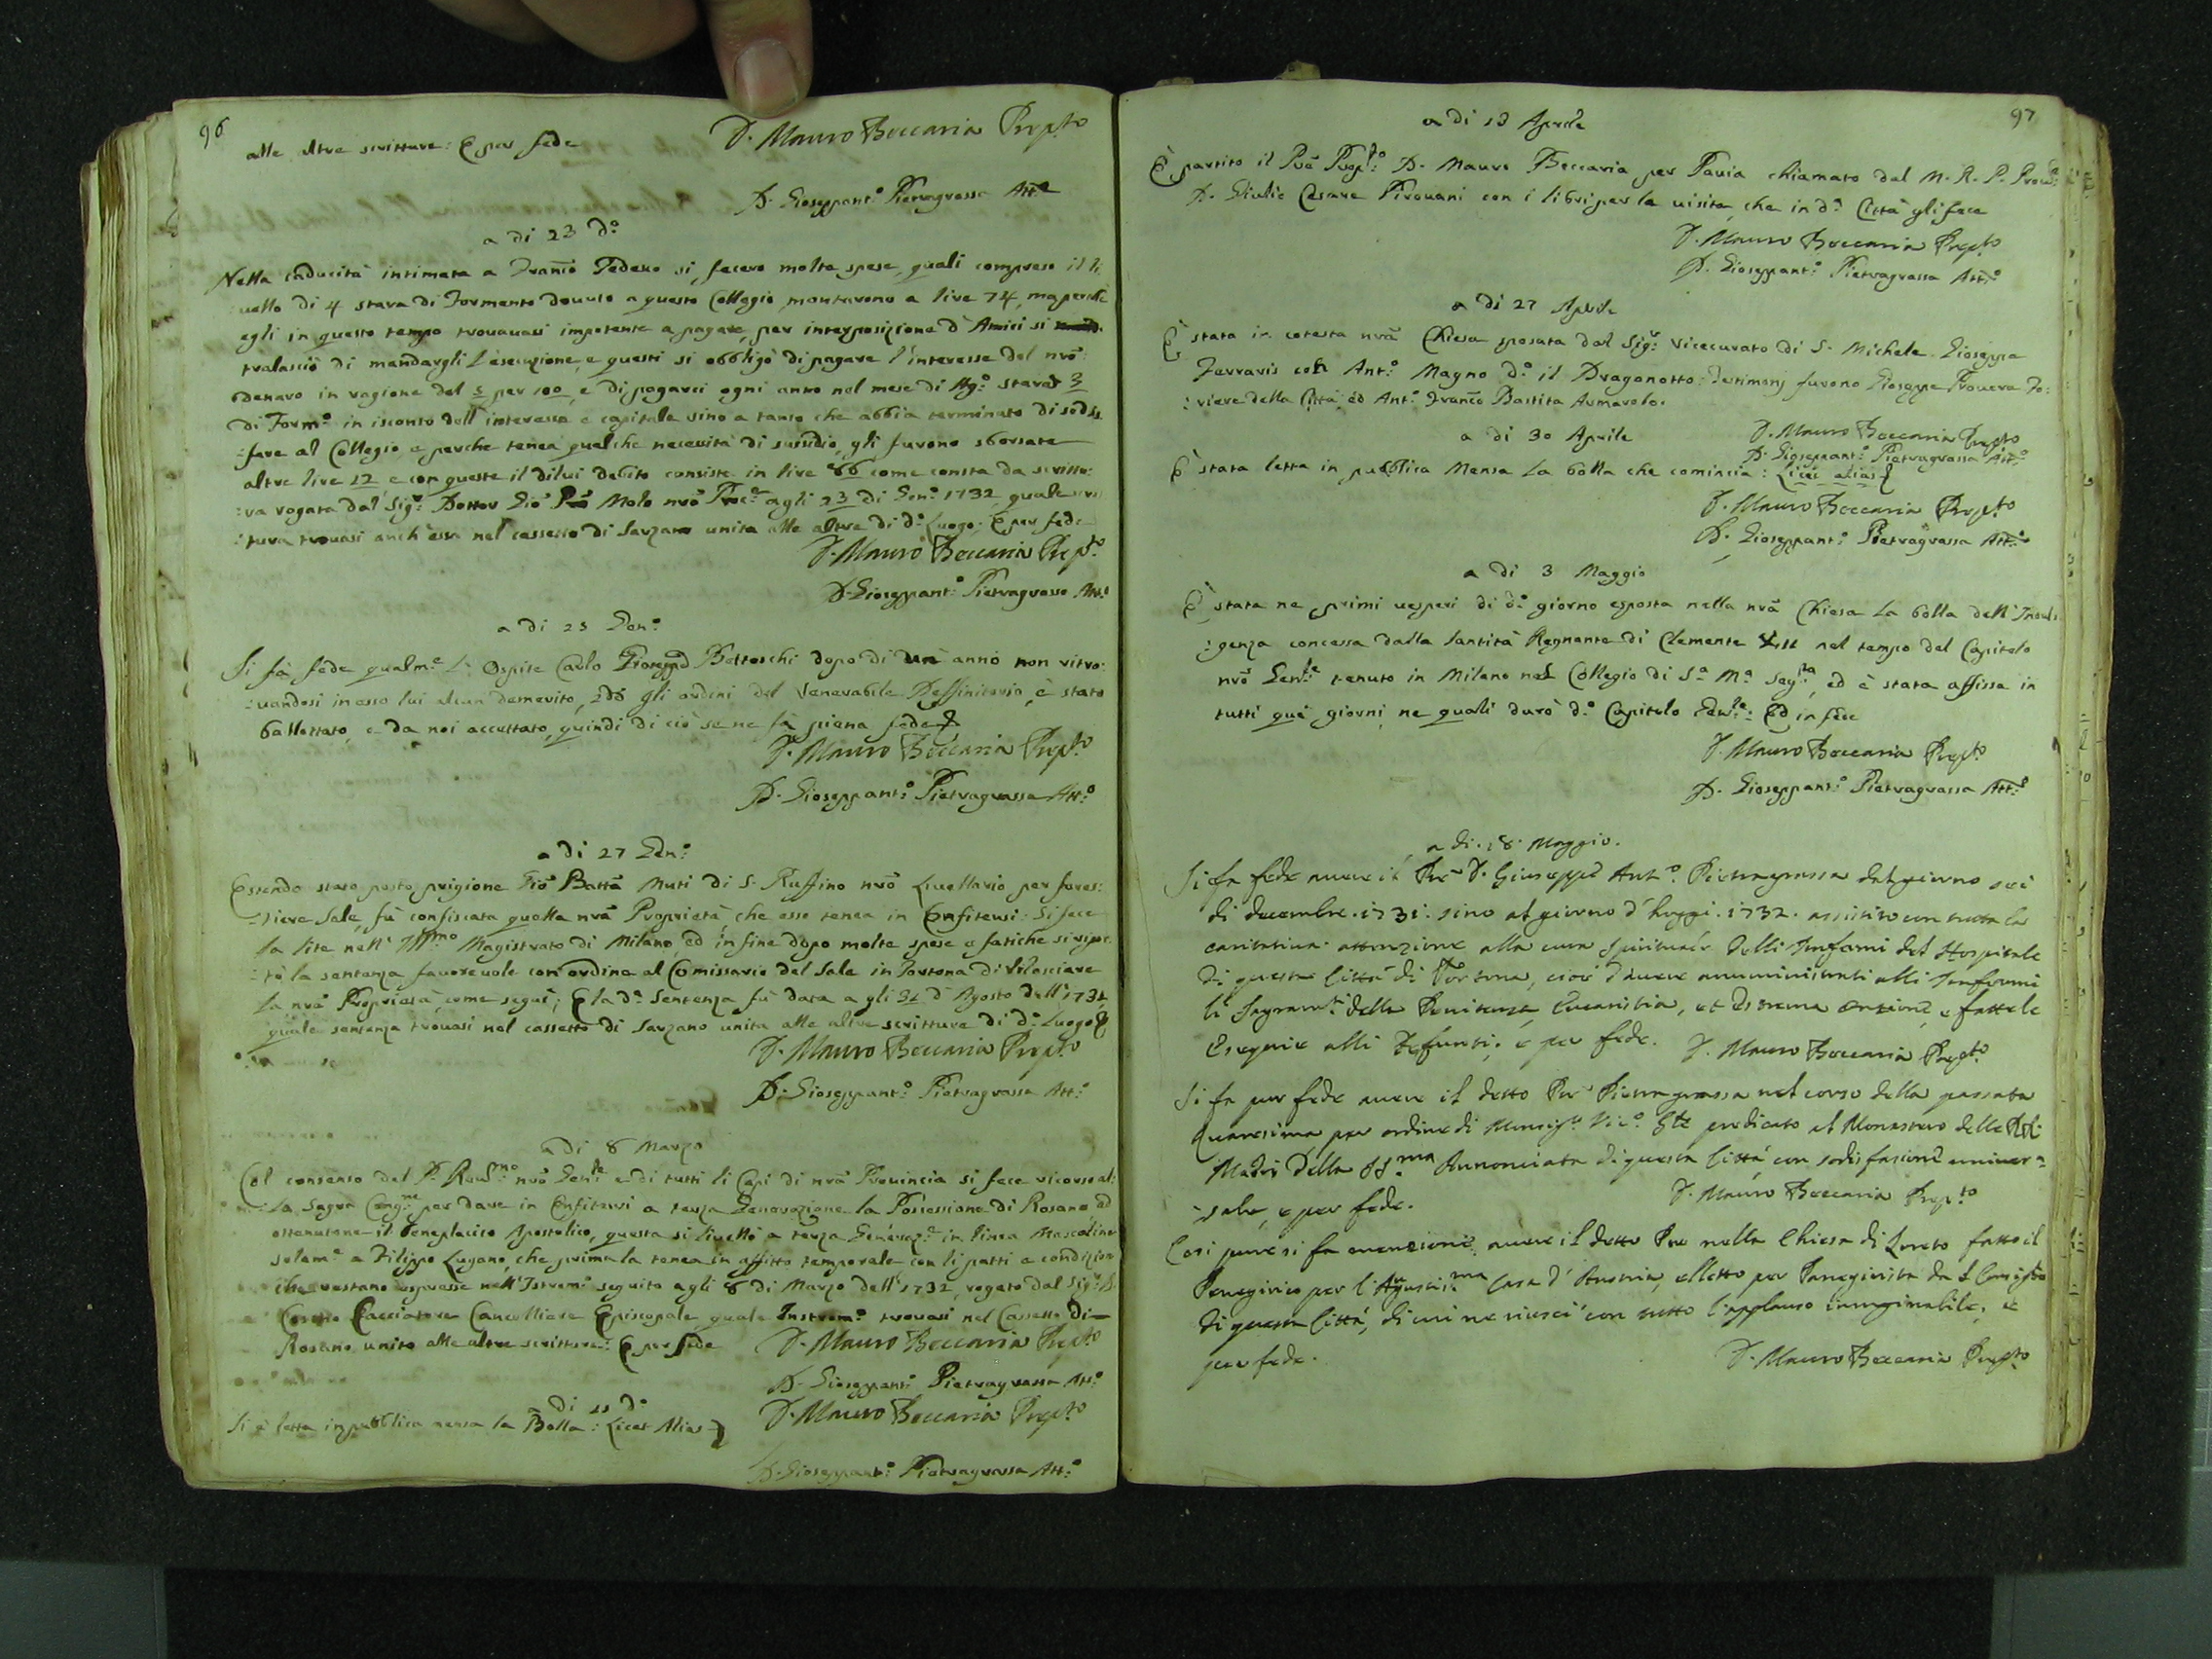 96
alle altre scritture: E per fede
D. Mauro Beccaria Prep.to
D. Gioseppant.o Pietragrassa Att.o
a di 23 d.o
Nella caducità intimata a Franc̃o Fedeso si fecero molte spese, quali compreso il li:
:uello di 4 stara di Formento douuto a questo Collegio, montarono a lire 74, ma perche
egli in questo tempo trouauasi impotente a pagare, per interposizione d'Amici si
tralasciò di mandargli l'esecuzione, e questi si obbligò di pagare l'interesse del nr̃o
denaro in ragione del 5 per 100, e di pagarci ogni anno nel mese di Ag.o stara 3
di Form.o in isconto dell'interesse e capitale sino a tanto che abbia terminato di sodis
:fare al Collegio, e perche tenea qualche necessità di sussidio, gli furono sborsate
altre lire 12 e con queste il dilui debito consiste in lire 86 come consta da scrittu:
:ra rogata dal Sig.r Dottor Giõ Molo nr̃o Proc.re agli 23 di Gen.o 1732, quale scri
:tura trouasi anch'essa nel cassetto di Sarzano unita alle altre di d.o Luogo: E per fede
D. Mauro Beccaria Prep.to
D. Gioseppant.o Pietragrassa Att.o
a di 25 Gen.o
Si fà fede qualm.e l'Ospite Carlo Gioseppe Betteschi dopo di un anno non ritro:
:uandosi in esso lui alcun demerito, 2dõ gli ordini del Venerabile Deffinitorio, è stato
ballottato, e da noi accettato, quindi di ciò se ne fà piena fede
D. Mauro Beccaria Prep.to
D. Gioseppant.o Pietragrassa Att.o
a di 27 Gen.o
Essendo stato posto prigione Giõ Battã Muti di S. Ruffino nr̃o Liuellario per fores:
:tiere Sale, fù confiscata quella nr̃a Proprietà che esso tenea in Enfiteusi. Si fece
la lite nell'Ill.mo Magistrato di Milano ed in fine dopo molte spese e fatiche si ripor
:tò la sentenza fauoreuole con ordine al Comissario del Sale in Tortona di rilasciare
la nr̃a Proprietà, come seguì; E la d.a Sentenza fù data a gli 31 d'Agosto dell'1731
quale sentenza trouasi nel cassetto di Sarzano unita alle altre scritture di d.o Luogo &
D. Mauro Beccaria Prep.to
D. Gioseppant.o Pietragrassa Att.o
a di 8 Marzo
Col consenso del P. Reud.mo nr̃o Gen.le e di tutti li Capi di nr̃a Prouincia si fece ricorso al:
:la Sagra Cong.ne per dare in Enfiteusi a terza Generazione la Possessione di Rosano, ed
ottenutone il Beneplacito Apostolico, questa si liuellò a terza Generaz.e in linea Mascolina
solam.e a Filippo Lugano, che prima la tenea in affitto temporale con li patti e condizioni
che restano espresse nell'Istrom.o seguito agli 8 di Marzo dell'1732, rogato dal Sig.r D.
Cacciatore Cancelliere Episcopale, quale Instrom.o trouasi nel Cassetto di
Rosano unito alle altre scritture: E per fede
D. Mauro Beccaria Prep.to
D. Gioseppant.o Pietragrassa Att.o
a di 11 d.o
Si è letta in pubblica mensa la Bolla: Licet Alias &
D. Mauro Beccaria Prep.to
D. Gioseppant.o Pietragrassa Att.o
97
a di 13 Aprile
È partito il Pr̃e Prep.to D. Mauro Beccaria per Pauia chiamato dal M. R. P. Prou.le
D. Giulio Cesare Pirouani con i libri per la uisita, che in d.a Città gli fece
D. Mauro Beccaria Prep.to
D. Gioseppant.o Pietragrassa Att.o
a di 27 Aprile
È stata in cotesta nr̃a Chiesa sposata dal Sig.r Vicecurato di S. Michele Gioseppa
Ferraris con Ant.o Magno d.o il Dragonotto: Testimonj furono Gioseppe Prouera Fo:
:riere della Città ed Ant.o Franc̃o Battita Armarolo.
a di 30 Aprile
D. Mauro Beccaria Prep.to
D. Gioseppant.o Pietragrassa Att.o
È stata letta in pubblica Mensa la bolla che comincia: Licet alias &
D. Mauro Beccaria Prep.to
D. Gioseppant.o Pietragrassa Att.o
a di 3 Maggio
È stata ne primi uesperi di d.o giorno esposta nella nr̃a Chiesa la bolla dell'Indul:
:genza concessa dalla Santità Regnante di Clemente XII nel tempo del Capitolo
nr̃o Gen.le tenuto in Milano nel Collegio di S.a M.a Seg.ta, ed è stata affissa in
tutti que giorni, ne quali durò d.o Capitolo Gen.le: Ed in fede
D. Mauro Beccaria Prep.to
D. Gioseppant.o Pietragrassa Att.o
a di 18 Maggio.
Si fa fede auere il Pr̃e D. Giuseppe Ant.o Pietragrassa dal giorno sei
di decembre 1731. sino al giorno d'hoggi 1732. assistito con tutta la
caritatiua attenzione alla cura spirituale delli Infermi del Hospitale
di questa Città di Tortona, cioè d'auere amministrati alli Infermi
li Sagram.ti della Penitenza, Eucaristia, et Estrema Onzione, e fattele
Esequie alli Defunti; e per fede. D. Mauro Beccaria Prep.to
Si fa pur fede auere il detto Pr̃e Pietragrassa nel corso della passata
Quaresima per ordine di Monsig.r Vic.o G.le predicato al Monastero delle RR.
Madri della SS.ma Annonciata di questa Città, con sodisfazione uniuer=
=sale, e per fede. D. Mauro Beccaria Prep.to
Così pure si fa menzione, auere il detto Pr̃e nella Chiesa di Loreto fatto il
Panegirico per l'Augustis.ma Casa d'Austria, eletto per Panegirista dal Consiglio
di questa Città, di cui ne riuscì con tutto l'applauso immaginabile, e
per fede. D. Mauro Beccaria Prep.to